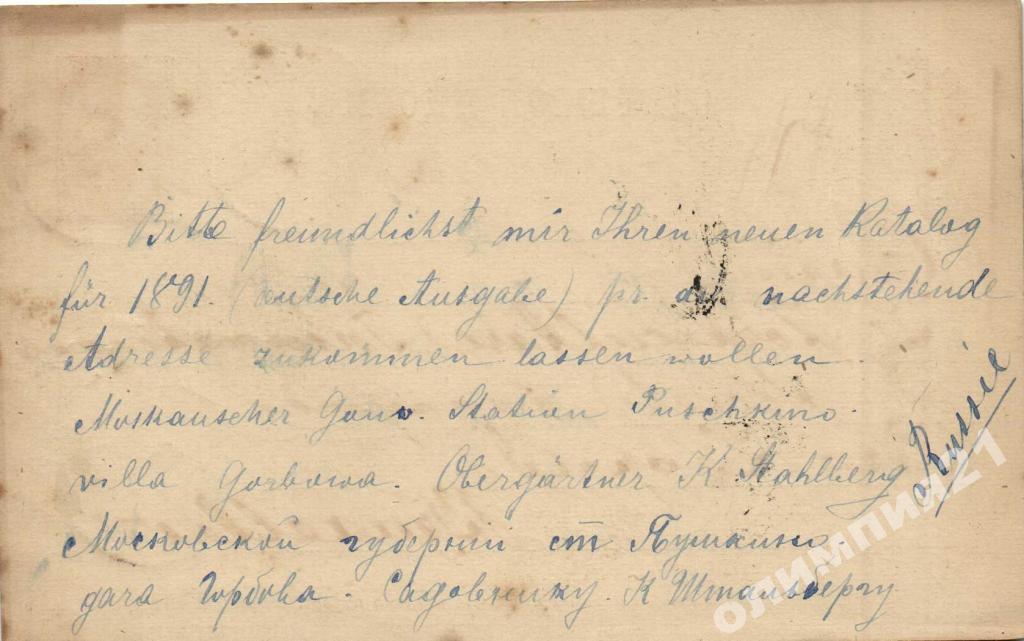 Bitte freundlichst mir Ihren neuen Katalog
für 1891. (deutsche Ausgabe) pr. nachstehende
Adresse zukommen lassen wollen.
Moskauscher Gouv. Station Puschkino.
villa Gorbowa. Obergärtner K. Stahlberg
Russie
Московской губернии ст Пушкино.
дача Горбова. Садовнику К Штальбергу
олимпия21